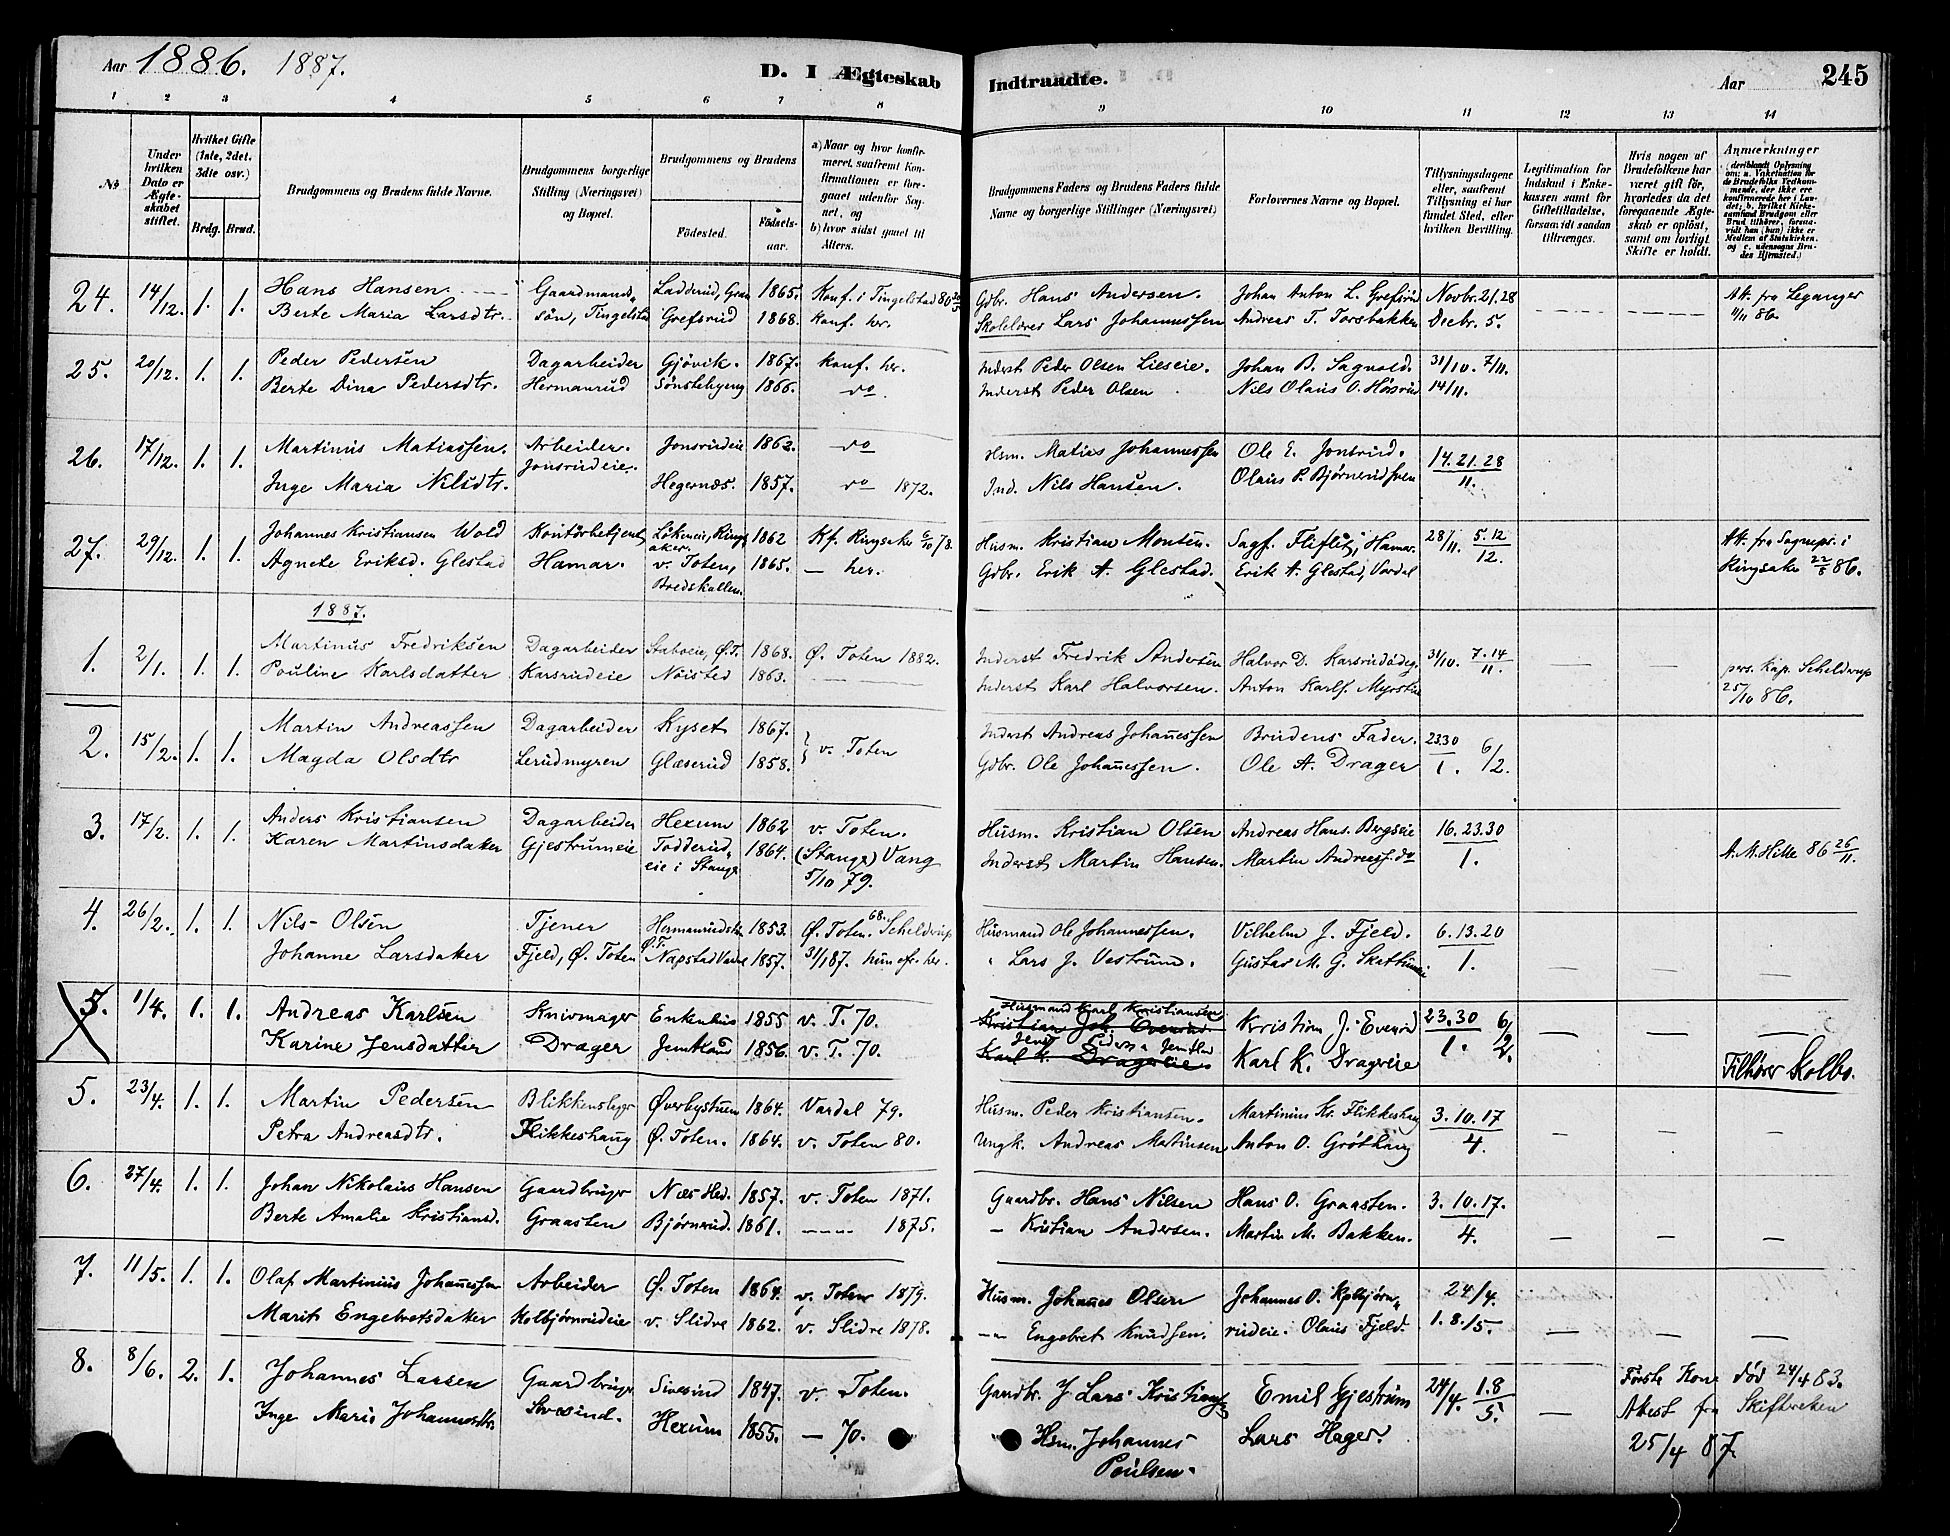 Aar 1886. 1887.
D. I Ægteskab Indtraadte.
Aar 245
1 2 3 4 5 6 7 8 9 10 11 12 13 14
No
Under hvilken Dato er Ægteskabet stiftet.
Hvilket Gifte (1ste, 2det, 3dte osv.)
Brdg. Brud.
Brudgommens og Brudens fulde Navne.
Brudgommens borgerlige Stilling (Næringsvei) og Bopæl.
Brudgommens og Brudens
Fødested. Fødselsaar.
a) Naar og hvor konfirmeret, saafremt Konfirmationen er foregaaet udenfor Sognet, og
b) hvor sidst gaaet til Alters.
Brudgommens Faders og Brudens Faders fulde Navne og borgerlige Stillinger (Næringsvei)
Forlovernes Navne og Bopæl.
Tillysningsdagene eller, saafremt Tillysning ei har fundet Sted, efter hvilken Bevilling.
Legitimation for Indskud i Enkekassen samt for Giftetilladelse, forsaavidt saadan tiltrænges.
Hvis nogen af Brudefolkene har været gift før, hvorledes da det foregaaende Ægteskab er opløst, samt om lovligt Skifte er holdt.
Anmærkninger
24. 14/12. 1. 1. Hans Hansen. Gaardmands- Ladderud, Gran 1865. Konf. i Tingelstad 80 Gdbr. Hans Andersen. Johan Anton L. Grefsrud Novbr. 21. 28 Att. fra Leganger
Berte Maria Larsdtr. søn, Tingelstad Grefsrud 1868. Konf. her. Skolelærer Lars Johannessen Andreas T. Torsbakken Decbr. 5. 11/11 86.
25. 20/12. 1. 1. Peder Pedersen Dagarbeider Gjøvik. 1867. Konf. her. Inderst Peder Olsen Lieseie. Johan B. Sagvold. 31/10. 7/11.
Berte Dina Pedersdtr. Hermanrud Sønstebyeng 1866. do. Inderst Peder Olsen Nils Olaus O. 14/11.
26. 17/12. 1. 1. Martinus Matiassen. Arbeider. Jonsrudeie 1862. do Hsm. Matias Johannessen Ole E. Jonsrud. 14. 21. 28
Inge Maria Nilsdtr. Jonsrudeie. Hegernæs. 1857. do 1872. Ind. Nils Hansen. Olaus P. 11.
27. 29/12. 1. 1. Johannes Kristiansen Wold Kontorbetjent Løkeneie, Ringsaker. 1862 Kf. Ringsaker 6/10 78. Husm. Kristian Monsen. Sagf. Fliflet, Hamar. 28/11. 5. 12 Att. fra Sognepr. i
Agnete Eriksd. Glestad Hamar. v. Toten, Bredskallen. 1865. — her. Gdbr. Erik A. Glestad. Erik A. Glestad, Vardal 12. Ringsaker 22/5 86.
1887.
1. 2/1. 1. 1. Martinus Fredriksen Dagarbeider Staboeie, Ø.T. 1868. Ø. Toten 1882. Inderst Fredrik Andersen Halvor D. 31/10. 7. 14 pers. Kap. Schelderup
Pouline Karlsdatter Karsrudeie Nøisted 1863. Inderst Karl Halvorsen. Anton Karls. 11 25/10 86.
2. 15/2. 1. 1. Martin Andreassen Dagarbeider Kyset 1867. v. Toten Inderst Andreas Johanessen Brudens Fader. 23.30 6/2.
Magda Olsdtr Lerudmyren Glæserud 1858. Gdbr. Ole Johanessen. Ole A. Drager 1.
3. 17/2. 1. 1. Anders Kristiansen Dagarbeider Hexum 1862 v. Toten. Husm. Kristian Olsen Andreas Hans. Bergseie 16. 23. 30
Karen Martinsdatter Gjestrumeie Todderud- eie i Stange 1864. (Stange) Vang 5/10 79. Inderst Martin Hansen. Martin Andreass. do 1. A. M. Hille 86 26/11.
4. 26/2. 1. 1. Nils Olsen Tjener 1853. Ø. Toten. 68. Schelderup Husmand Ole Johannessen. Vilhelm J. Fjeld. 6. 13. 20
Johanne Larsdatter Fjeld, Ø. Toten Napstad Vardal 1857. 31/1 87. hun ofr. her. " Lars J. Vestrum. Gustav M. G. 1.
5. 1/4. 1. 1. Andreas Karlsen Knivmager Enkenhus 1855 v. T. 70. Husmand Karl Kristiansen Kristian J. Evenrud 23. 30 6/2.
Karine Jensdatter Drager Jemtland 1856. v. T. 70. Karl K. Drageie Karl K. Drageie 1. Tilhører Kolbo.
5. 23/4. 1. 1. Martin Pedersen Blikkenslager Øverbystuen 1864. Vardal 79. Husm. Peder Kristiansen. Martinius Kr. Flikkeshaug 3. 10. 17
Petra Andreasdtr. Flikkeshaug Ø. Toten. 1864. v. Toten 80. Ungk. Andreas Martinsen Anton O. Grøthaug 4.
6. 27/4. 1. 1. Johan Nikolaus Hansen Gaardbruger Næs Hed. 1857. v. Toten 1871. Gaardbr. Hans Nilsen Hans O. Graasten. 3. 10. 17.
Berte Amalie Kristiansd. Graasten Bjørnerud. 1861. 1875. — Kristian Andersen. Martin M. Bakken. 4.
7. 11/5. 1. 1. Olaf Martinius Johanessen Arbeider Ø. Toten 1864. v. Toten 1879. Husm. Johanes Olsen Johannes O. Kolbjørn- 24/4.
Marit Engebretsdatter Kolbjørnrudeie v. Slidre 1862. v. Slidre 1878. Engebret Knudsen. rudeie. Olaus Fjeld. 1. 8. 15.
8. 8/6. 2. 1. Johannes Larsen Gaardbruger Sivesind 1847. v. Toten. Gaardbr. J Lars Kristians. Emil Gjestrum 24/4. 1. 8 Første Kone død 24/4 83.
Inge Marie Johannesdtr. Sivesind. Hexum 1855. — 70. Hsm. Johannes Poulsen. Lars Hager. 5. Attest fra Skifteretten
25/4 87.